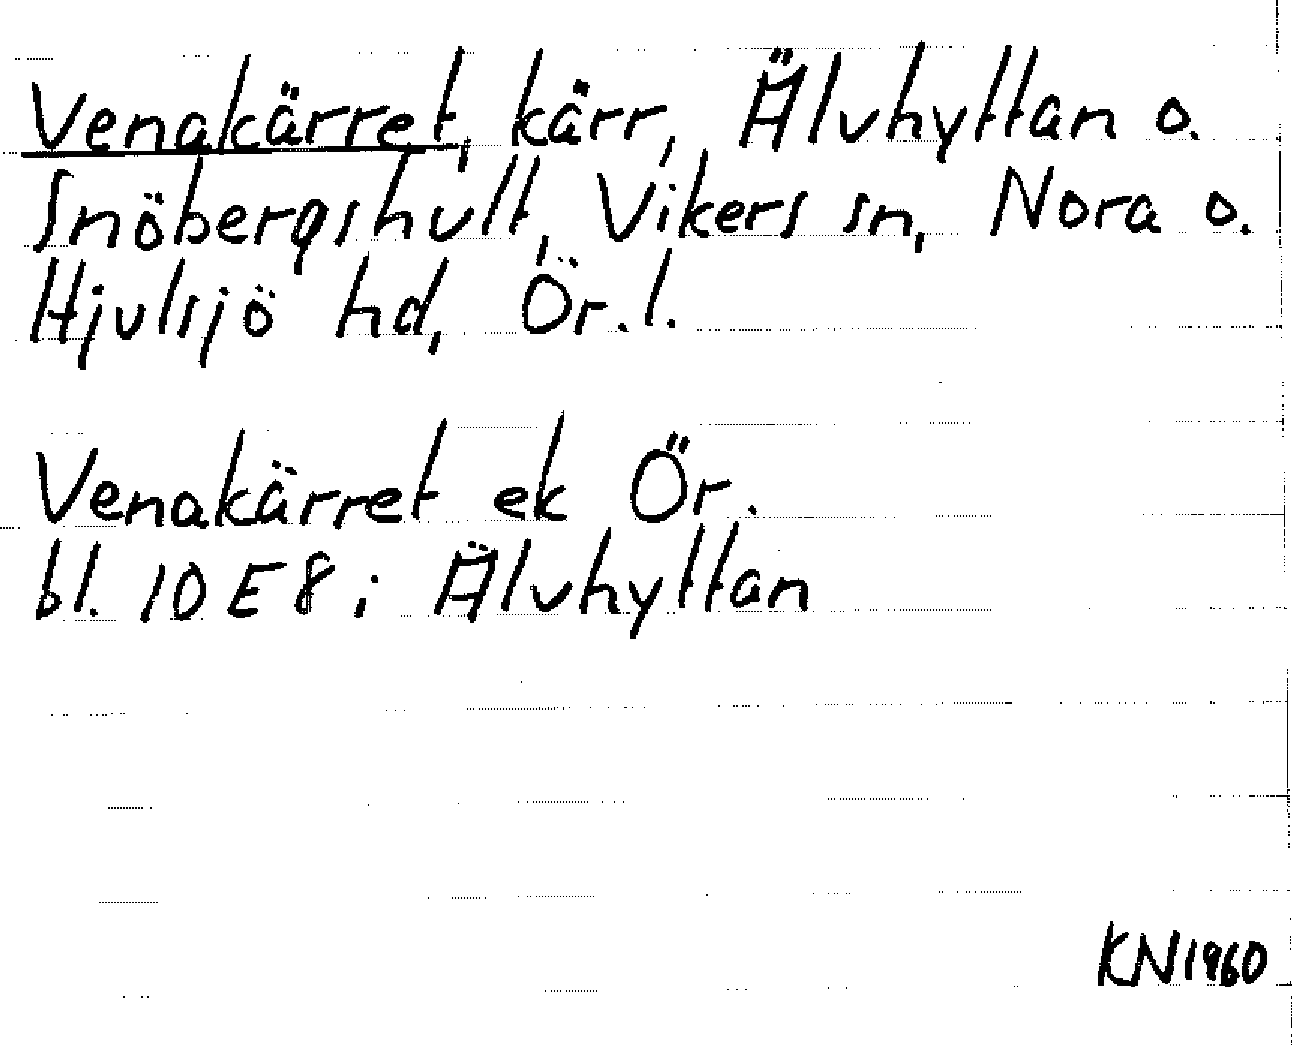 Venakärret, kärr, Älvhyttan o.
Snöbergshult, Vikers sn, Nora o.
Hjulsjö hd, Ör. l.
Venakärret ek Ör.
bl. 10 E 8 i Älvhyttan
KN1960